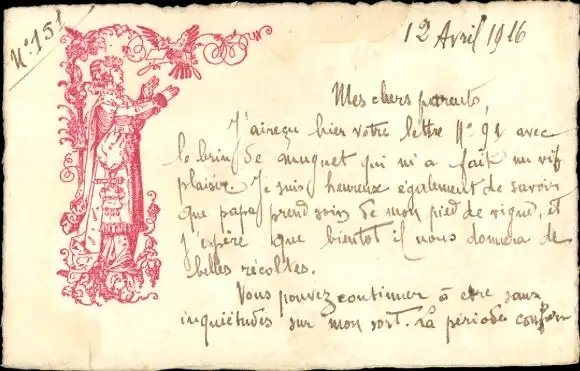 N° 151
12 Avril 1916
Mes chers parents,
J'ai reçu hier votre lettre N° 91 avec
le brin de muguet qui m'a fait un vif
plaisir. Je suis heureux également de savoir
que papa prend soin de mon pied de vigne, et
j'espère que bientot il nous donnera de
belles récoltes.
Vous pouvez continuer à etre sans
inquiétudes sur mon sort. La période